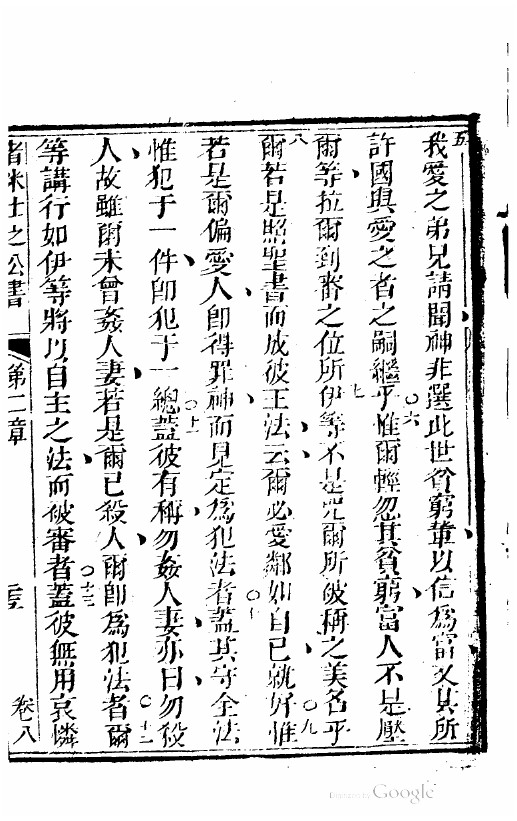 五我愛之弟兄請聞神非選此世貧窮輩以信為富又其所
許國與愛之者之嗣繼乎六惟爾輕忽其貧窮富人不是壓
爾等拉爾到審之位所七伊等不是咒爾所被稱之美名乎
八爾若是照聖書而成彼王法云爾必愛鄰如自己就好九惟
若是爾偏愛人即得罪神而見定為犯法者十蓋其守全法
惟犯于一件即犯于一總十一蓋彼有稱勿姦人妻亦曰勿殺
人故雖爾未曾姦人妻若是爾已殺人爾即為犯法者十二爾
等講行如伊等將以自主之法而被審者十三蓋彼無用哀憐
者米士之公書 第二章 卷八
Google